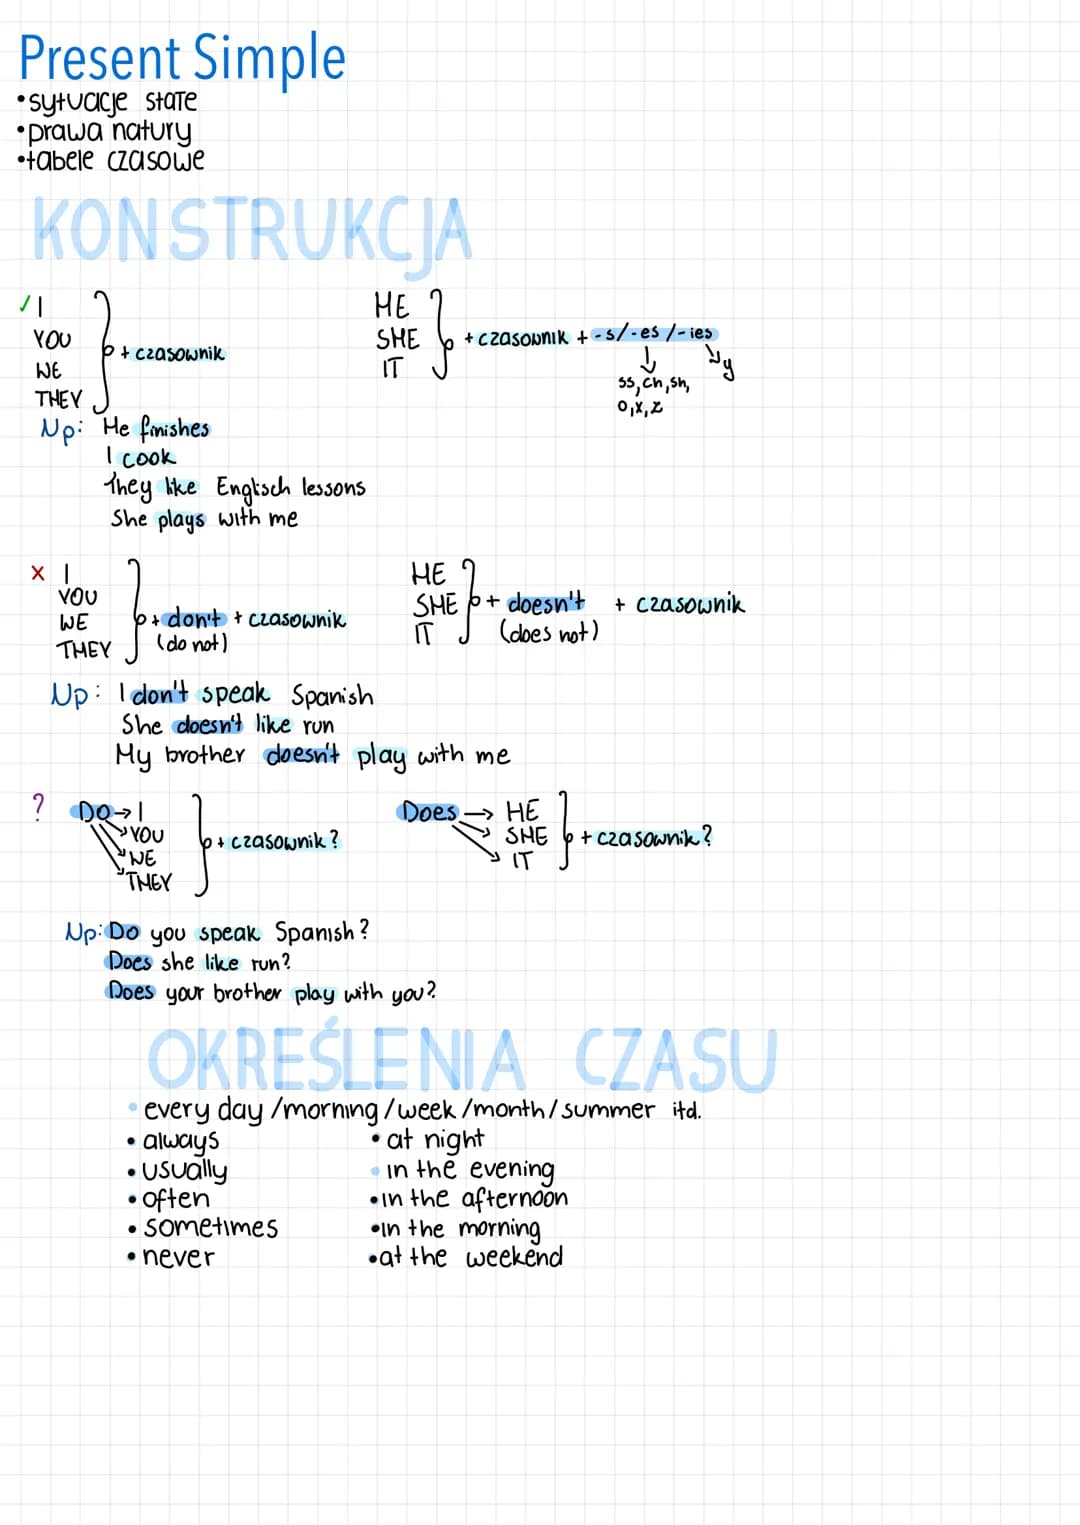 Present Simple
•sytuacje stałe
•prawa natury
•tabele czasowe
KONSTRUKCJA
✓ I
YOU
WE
THEY
+ czasownik
HE
SHE
IT
+ czasownik + -s/-es/-ies
ss, ch, sh,
o, x, z
y
Np: He finishes
I cook
They like Englisch lessons
She plays with me
x I
YOU
WE
THEY
+ don't + czasownik
(do not)
HE
SHE
IT
+ doesn't + czasownik
(does not)
Np: I don't speak Spanish
She doesn't like run
My brother doesn't play with me
? Do → I
YOU
WE
THEY
+ czasownik?
Does → HE
SHE
IT
+ czasownik?
Np: Do you speak Spanish?
Does she like run?
Does your brother play with you?
OKREŚLENIA CZASU
• every day /morning /week /month / summer itd.
• always
• usually
• often
• sometimes
• never
• at night
• in the evening
• in the afternoon
• in the morning
• at the weekend